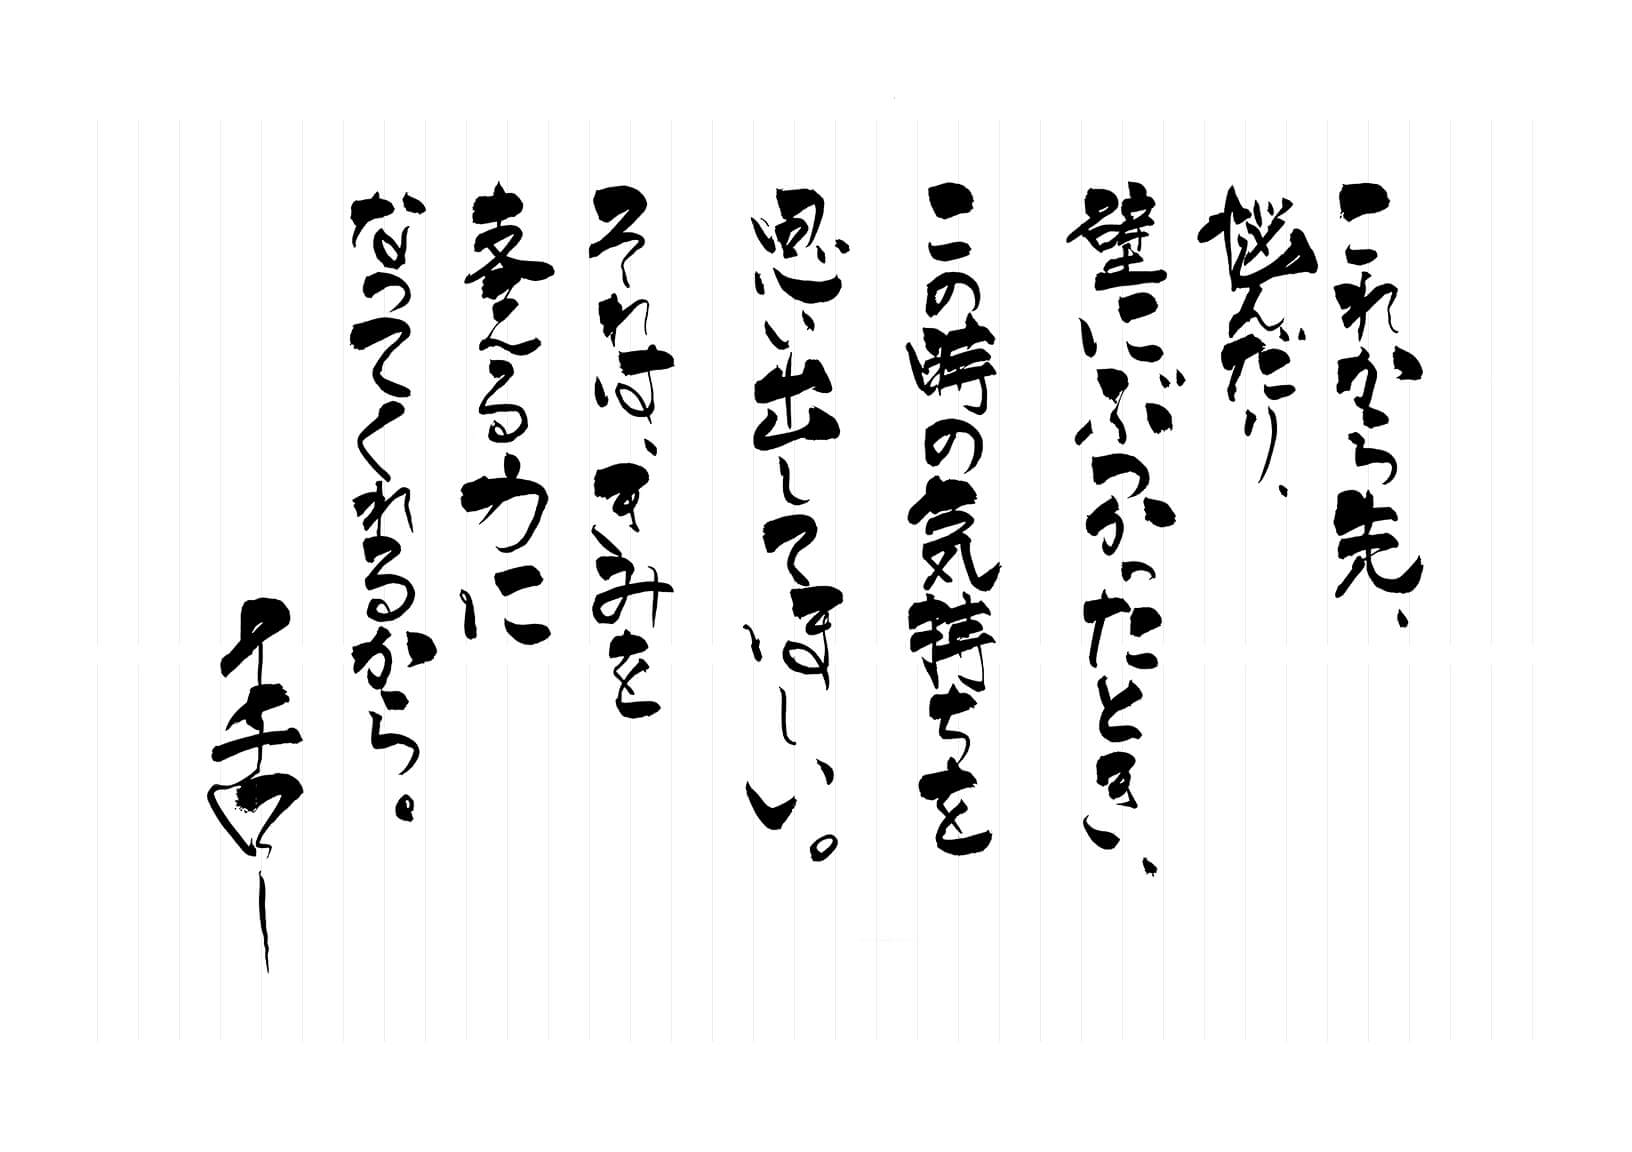 これから先、
悩んだり、
壁にぶつかったとき、
この時の気持ちを
思い出してほしい。
それは、きみを
支える力に
なってくれるから。